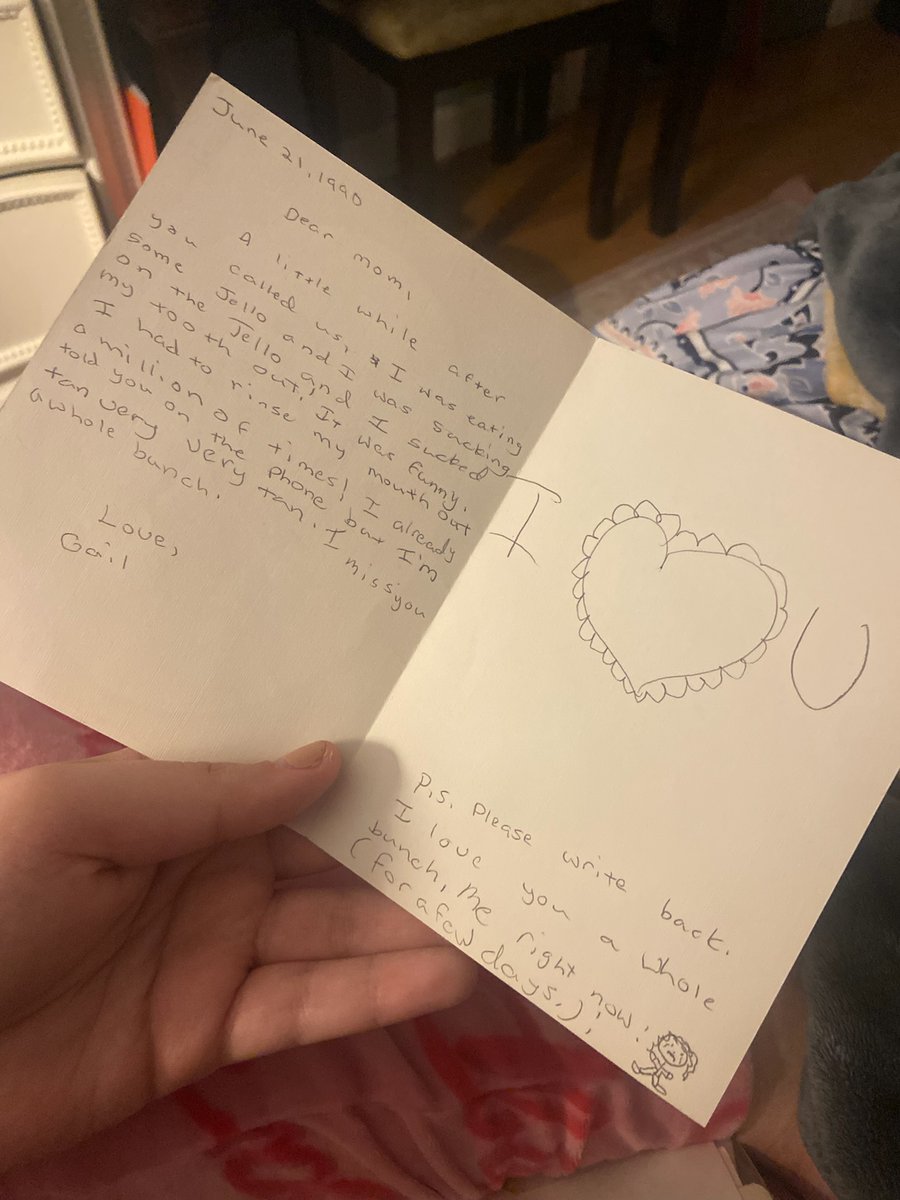 June 21, 1990
Dear mom,
A little while after
you called us, I was eating
some Jello and I was sucking
on the Jello and I sucked
my tooth out. It was funny.
I had to rinse my mouth out
a million of times! I already
told you on the phone but I'm
tan very very tan. I missyou
awhole bunch.
Love,
Gail
I U
P.S. Please write back.
I love you a whole
bunch, me right now:
(for afew days.)